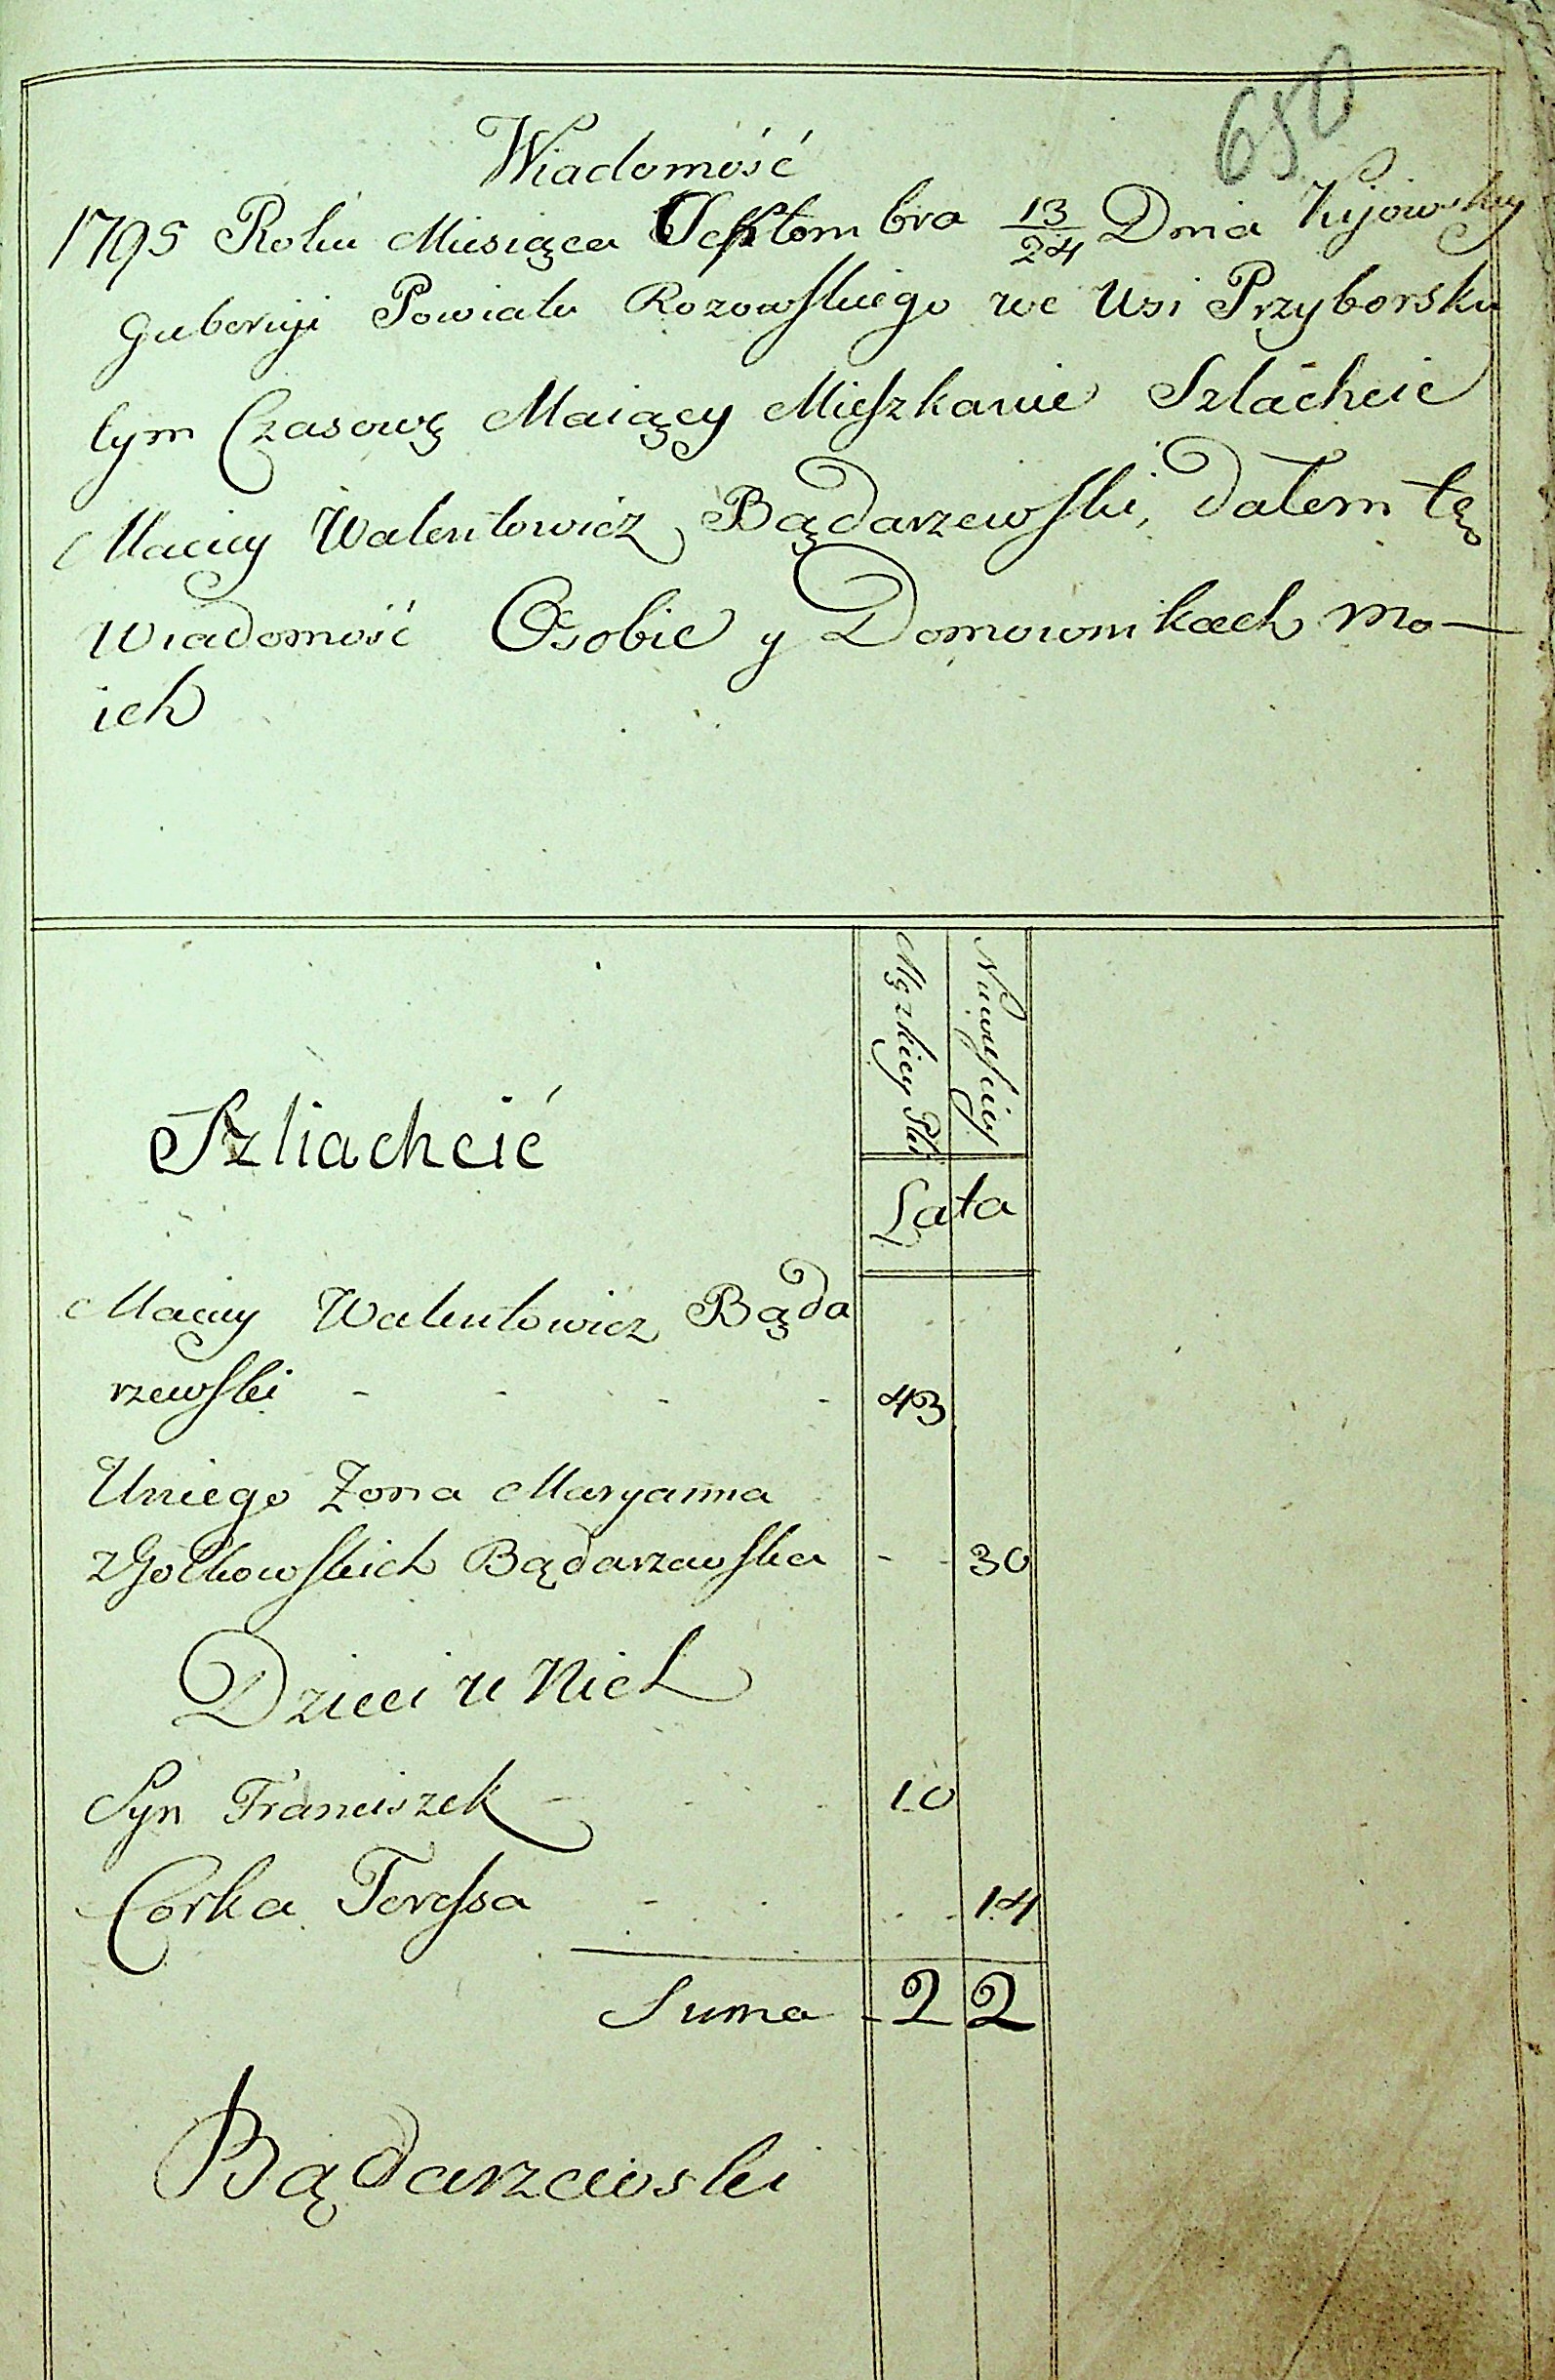 650
Wiadomość
1795 Roku Miesiąca 13/24 Dnia Kijowskiey
Guberniji Powiatu Rozowskiego we Wsi Przyborsku
tym Czasowę Maiący Mieszkanie Szlachcic
Maciey Walentowicz Bądarzewski, dałem tę
Wiadomość Osobie y Domownikach mo-
ich
Męzkiey Płci
Niewieściey
Szliachcić
Lata
Maciey Walentowicz Bąda
rzewski - - - - 43
Uniego Zona Maryanna
zGołkowskich Bądarzewska - - 30
Dzieci u Nich
Syn Franciszek - - - 10
Corka Teressa - - - - 14
Suma - 2 2
Bądarzewski